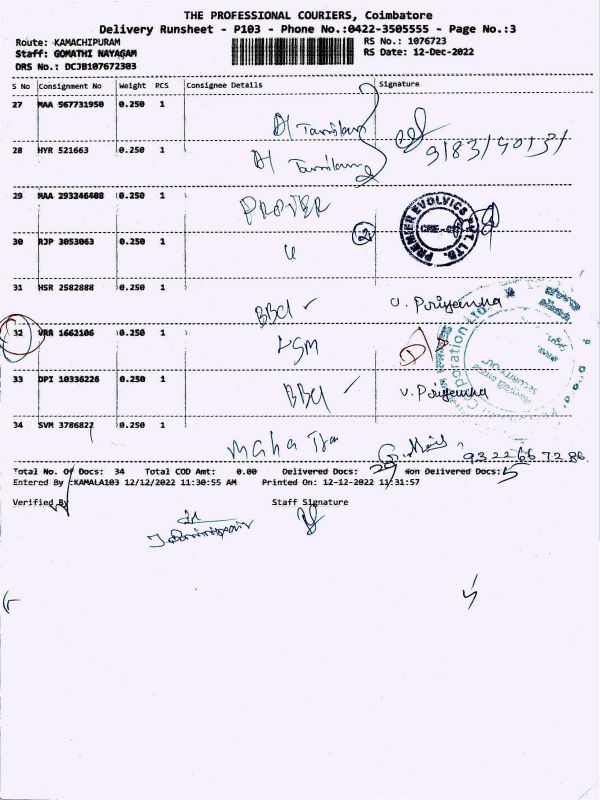 THE PROFESSIONAL COURIERS, Coimbatore
Delivery Runsheet - P103 - Phone No.:0422-3505555 - Page No.:3
Route: KAMACHIPURAM RS No.: 1076723
Staff: GOMATHI NAYAGAM RS Date: 12-Dec-2022
DRS No.: DCJB107672303
S No Consignment No Weight PCS Consignee Details Signature
27 MAA 567731950 0.250 1
28 HYR 521663 0.250 1
9183140131
29 MAA 293246408 0.250 1
PREMIER EVOLVICS PVT. LTD.
30 RJP 3053063 0.250 1
31 HSR 2582888 0.250 1 BBCl V. Priyenka
32 VRR 1662106 0.250 1 D/A
SECURITY
33 DPI 10336226 0.250 1 BBCl V. Priyenka
34 SVM 3786822 0.250 1 Maha
Total No. Of Docs: 34 Total COD Amt: 0.00 Delivered Docs: 29 Non Delivered Docs: 5
Entered By :KAMALA103 12/12/2022 11:30:55 AM Printed On: 12-12-2022 11:31:57
Verified By Staff Signature